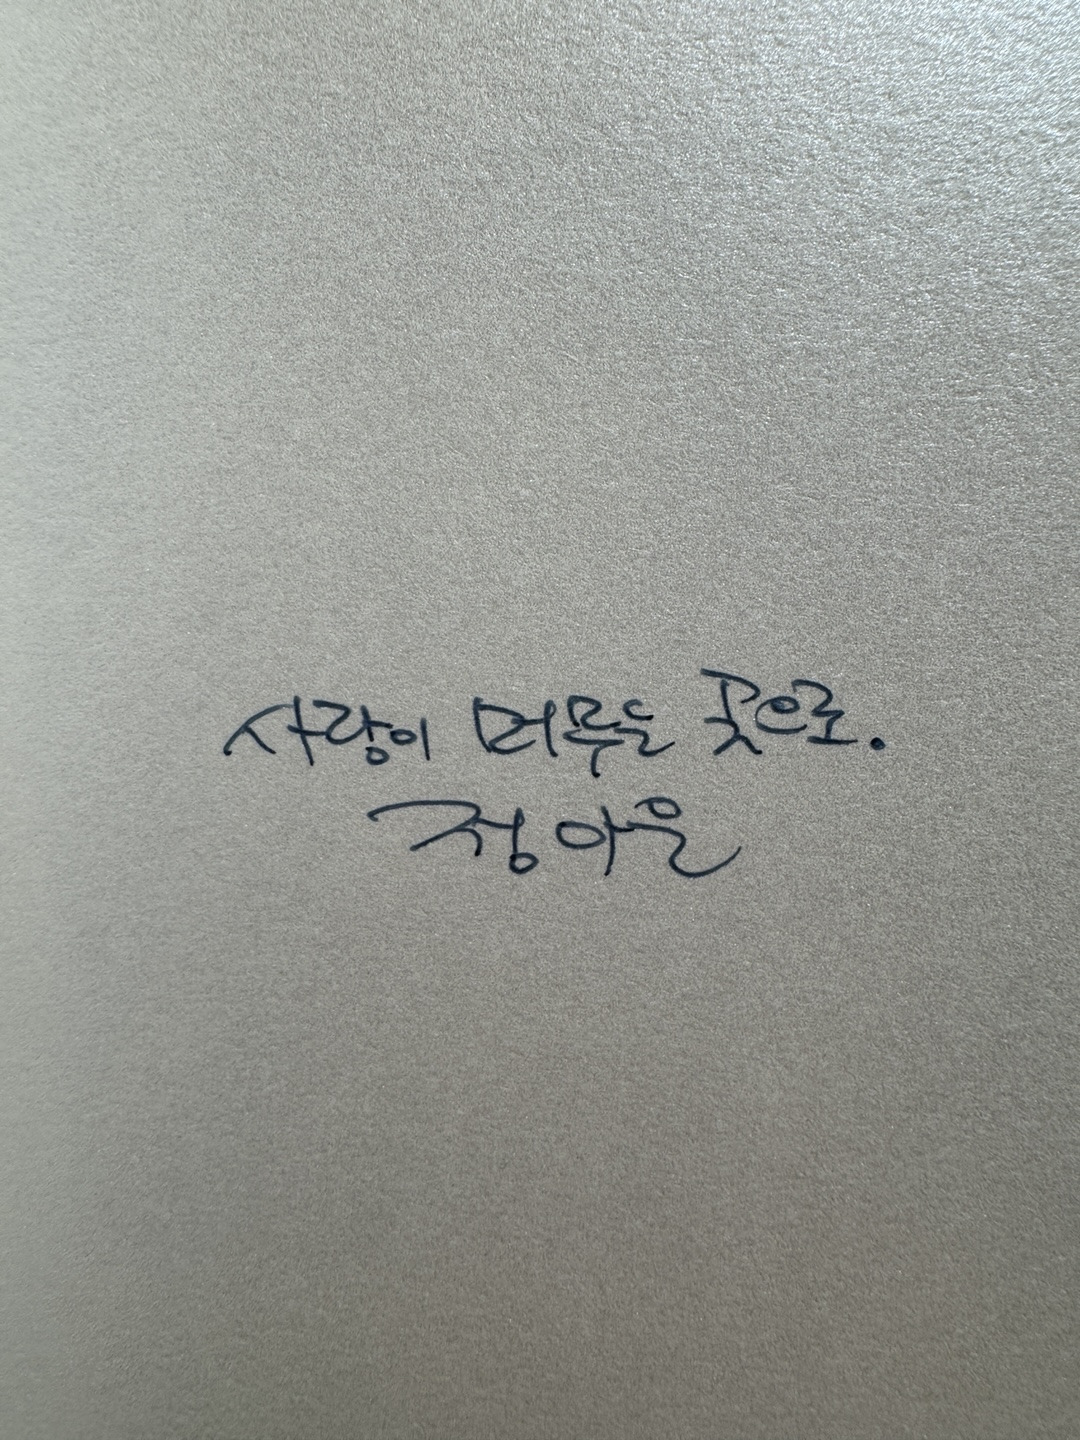 사랑이 머무는 곳으로.
정아은